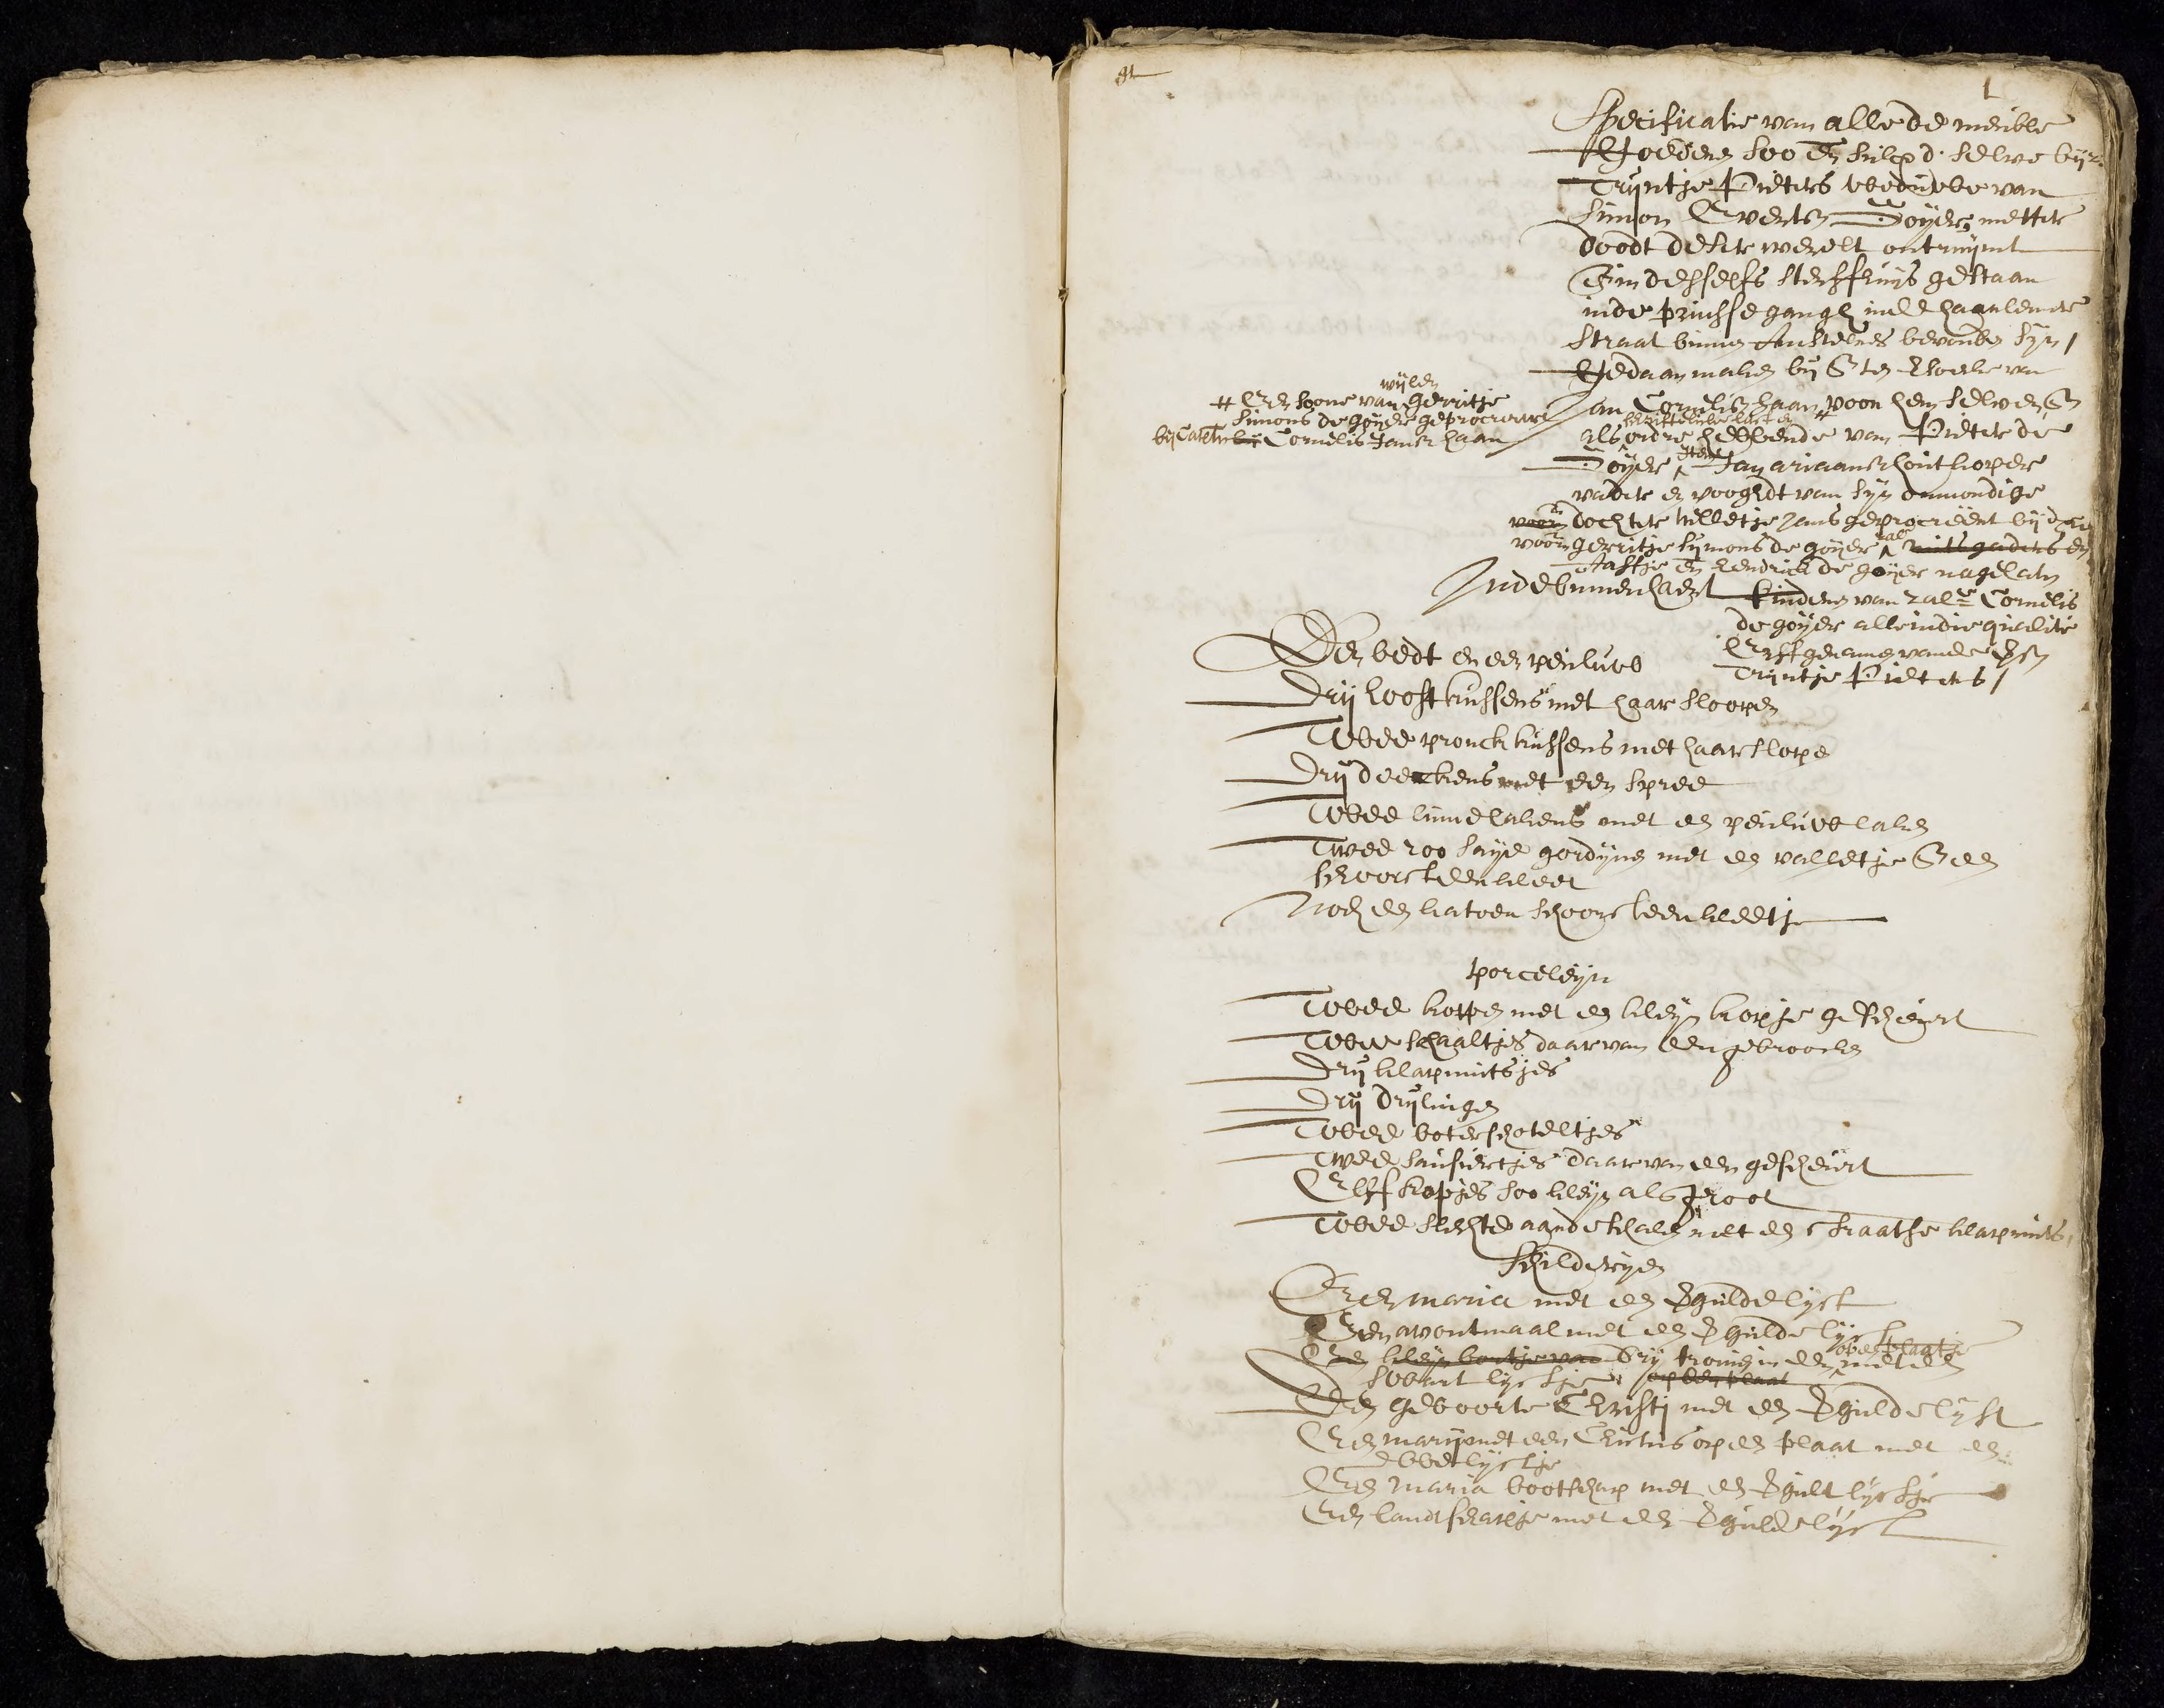 1
Specificatie van alle de meuble
Goederen soo en sulcx d. selve bij
Trijntje Pieters weduwe van
Simon Evertsz Goijer, metter
doodt deser werelt ontruijmt
en in desselfs sterffhuijs gestaan
inde prinsse gangh inde haarlemer
straat binnen Amsteldam bevonden sijn /
Gedaan maken bij en ten versoeke van
Jan Cornelisz haan voor hem selven en
schriftelijke last en #
als ordre hebbende van Pieter de
Goijer, Item Jan ariaansz houtkoper
vader en vooght van sijn onmondige
voorn dochter Lilletje Jans geprocreëert bij de
voorn gerritje sijmons de goijer zalr mitsgaders en
Aaltje en hendrick de goijer nagelaten
kinderen van zalr Cornelis
de goijer alle in die qualite
Erffgenamen vande voorsz
Trijntje Pieters /
wijlen
# Een soone van gerritje
Simons de goijer geprocreeert
bij Cornelis Jansz haan
Inde binnenhaert
Een bedt en een peuluwe
Drij hooftkussens met haar sloopen
Twee pronck kussens met haar slope
Drij deekens met een spree
Twee linne lakens met een peuluwe laken
Twee roo saije gordijnen met een valletje en een
schoorsteenkleet
Noch een katoen schoorsteenkleetje
porceleijn
Twee koppen met een kleijn kopje gescheurt
Twee schaaltjes daar van een gebrooken
Drij klapmutsjes
Drij drijlingen
Twee boterschoteltjes
Twee sausiertjes daar van een gescheurt
Elff kopjes soo kleijn als groot
Twee slechte aarde schalen met een straatse klapmuts,
Schilderijen
Een maria met een vergulde lijst
Een avontmaal met een vergulde lijst
op een plaatje
Een kleijn bortje van drij tronien in een met een
swart lijstje op een plaat
Een geboorte Christi met een vergulde lijst
Een marij met een Christus op een plaat met een
ebbe lijstje
Een maria bootschap met een vergult lijstje
Een landschapje met een vergulde lijst